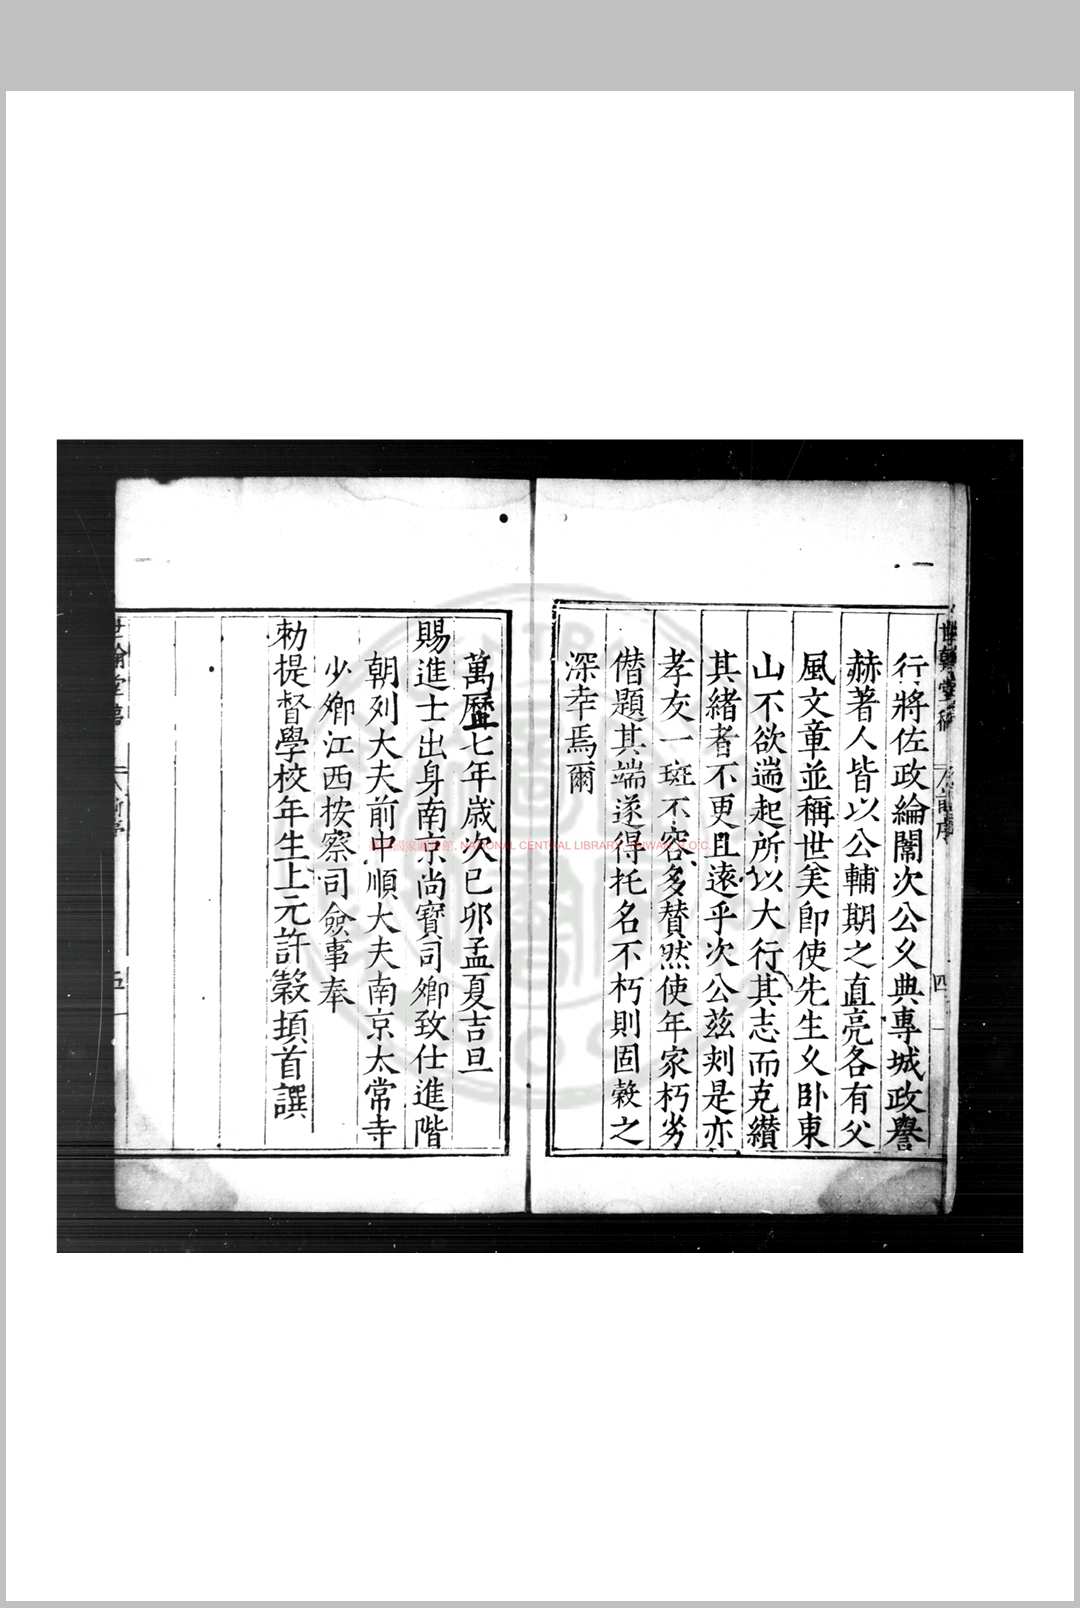 行將佐政綸闈次公乂典專城政譽
赫著人皆以公輔期之直亮各有父
風文章並稱世美卽使先生乂卧東
山不欲遄起所以大行其志而克纉
其緒者不更且遠乎次公兹刾是亦
孝友一斑不容多賛然使年家朽劣
僣題其端遂得托名不朽則固穀之
深幸焉爾
萬曆七年歲次己卯孟夏吉旦
賜進士出身南京尚寳司卿致仕進階
朝列大夫前中順大夫南京太常寺
少卿江西按察司僉事奉
勑提督學校年生上元許穀頓首譔
世翰堂稿
前序
四
五
NATIONAL CENTRAL LIBRARY, TAIWAN, R.O.C.